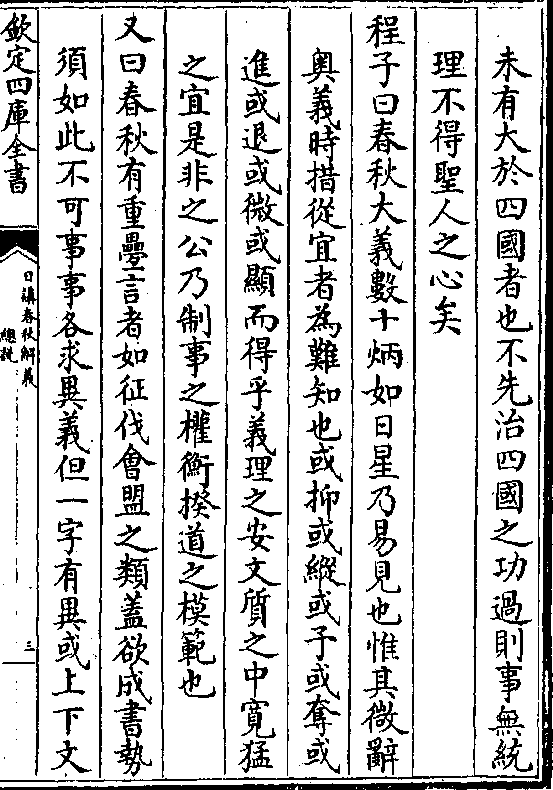 未有大於四國者也不先治四國之功過則事無統
理不得聖人之心矣
程子曰春秋大義數十炳如日星乃易見也惟其微辭
奧義時措從宜者為難知也或抑或縱或予或奪或
進或退或微或顯而得乎義理之安文質之中寛猛
之宜是非之公乃制事之權衡揆道之模範也
又曰春秋有重疊言者如征伐會盟之類蓋欲成書勢
須如此不可事事各求異義但一字有異或上下文
欽定四庫全書
日講春秋解義
總説
三